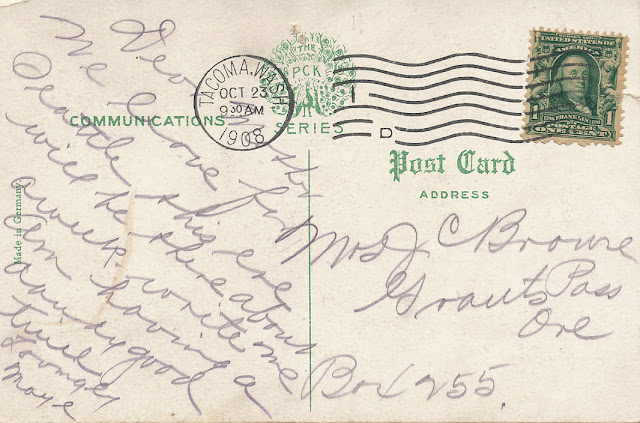 THE
PCK
SERIES
TACOMA, WASH.
OCT 23
9 30 AM
1908
D
UNITED STATES OF AMERICA
1 1
POSTAGE
ONE CENT
COMMUNICATIONS
Post Card
ADDRESS
Made in Germany.
Dear
We leave for
Seattle this eve
will be there about
a week write me
Am having a
good
time
Maye
Mrs J C Browne
Grants Pass
Ore
Box 255.